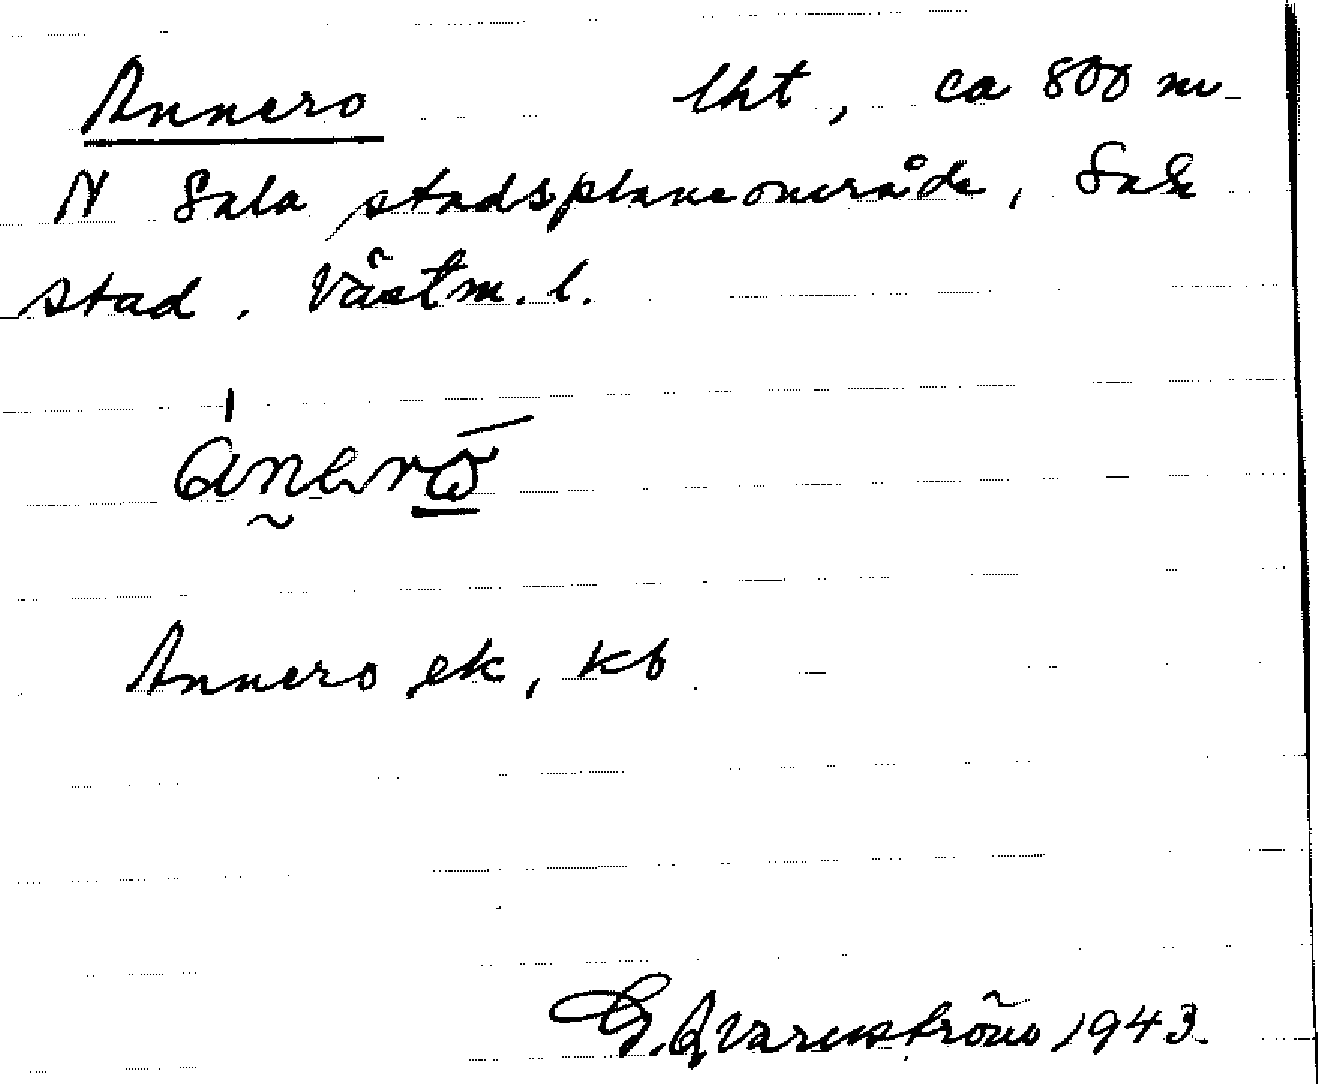 Annero lht, ca 800 m
N Sala stadsplaneområde, Sala
stad. Västm. l.
Annero ek, kb
G. Qvarnström 1943.